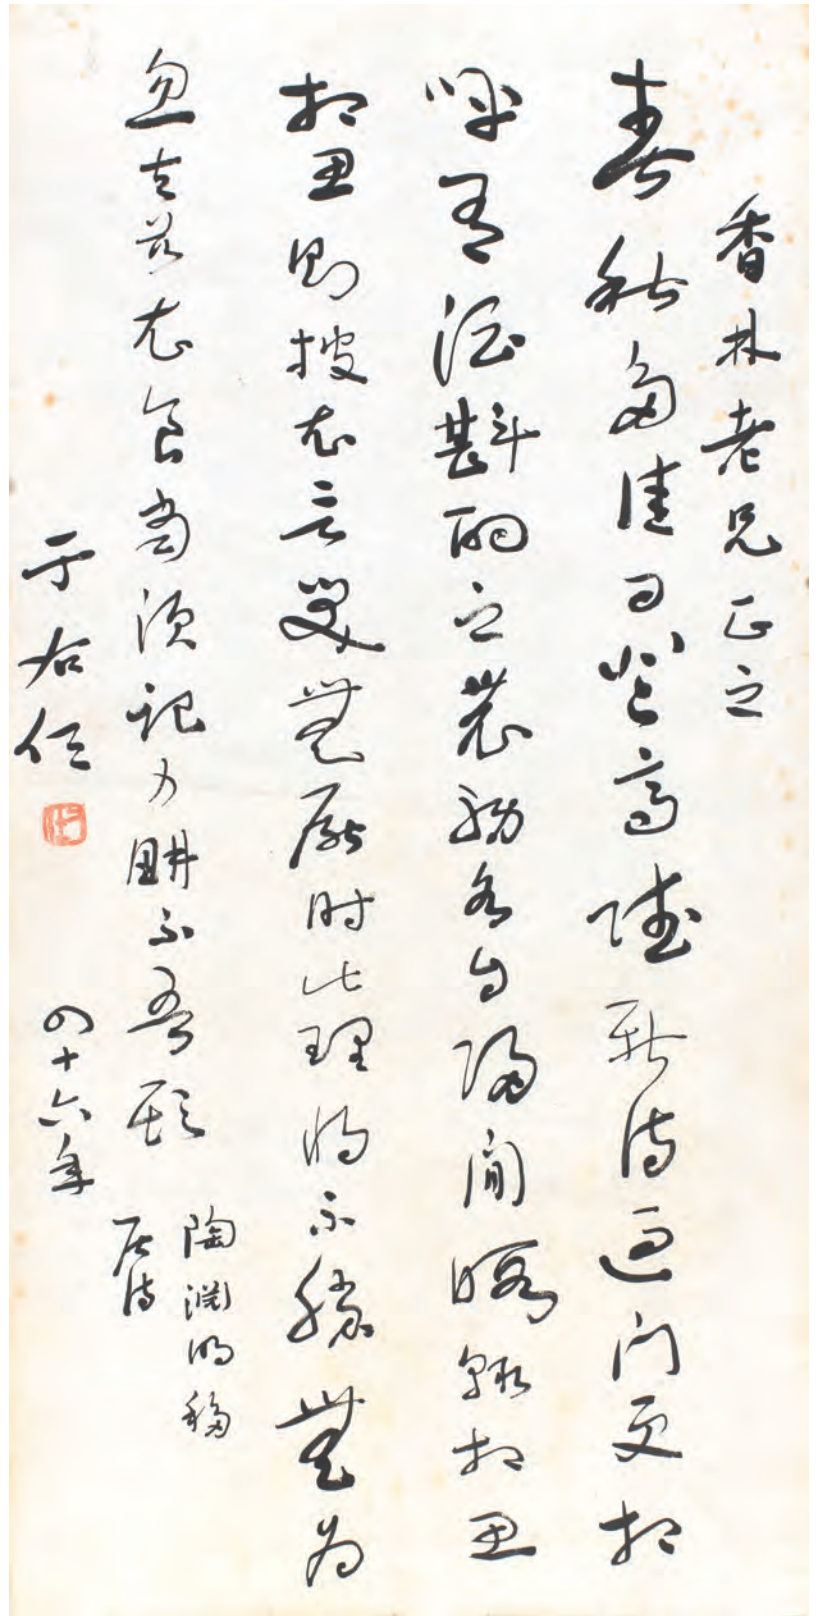 香林老兄正之
春秋多佳日登高賦新詩過門更相
呼有酒斟酌之農務各自歸閒暇輒相思
相思則披衣言笑無厭時此理將不勝無為
忽去茲衣食當須記力耕不吾欺
陶淵明移
居詩
于右任
四十六年